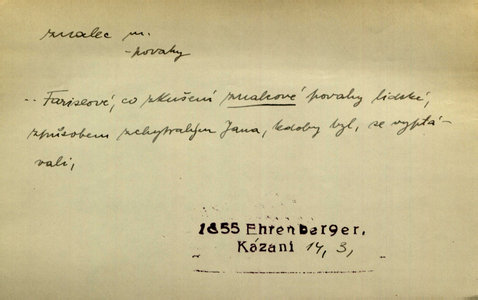 znalec m.
-povahy
.. Fariseové, co zkušení znalcové povahy lidské,
způsobem zchytralým Jana, kdoby byl, se vyptá-
vali,
1855 Ehrenberger,
Kázaní 14, 3,